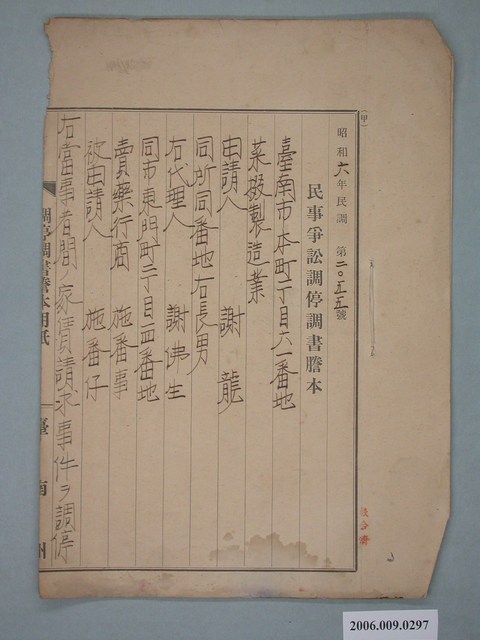 (甲)
昭和六年民調 第二〇五五號
民事爭訟調停調書謄本
臺南市本町二丁目六一番地
菓掇製造業
申請人 謝龍
同所同番地右長男
右代理人 謝佛生
同市東門町二丁目一四番地
賣藥行商 施番事
被申請人 施番仔
右當事者間ノ家賃請求事件ヲ調停
調停調書謄本用紙 臺南州
2006.009.0297